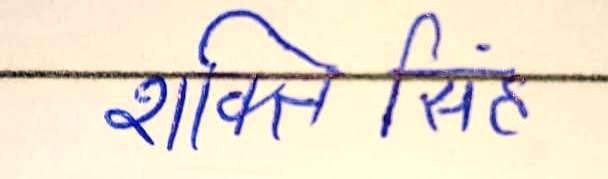 शक्ति सिंह